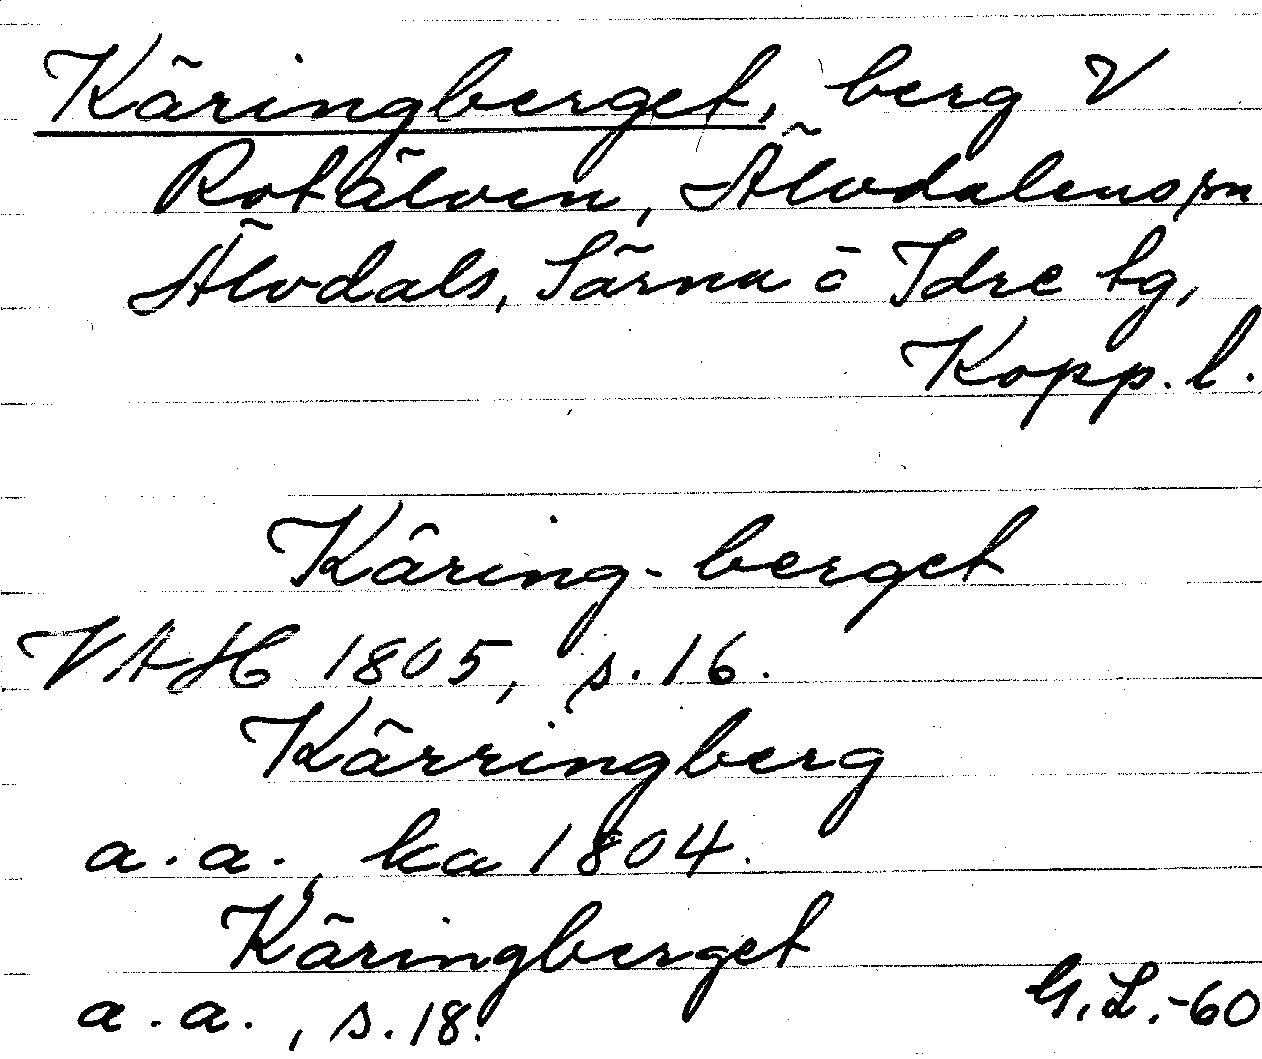 Käringberget, berg V
Rotälven, Älvdalens sn
Älvdals, Särna o Idre tg,
Kopp. l.
Käring-berget
VAH 1805, s. 16.
Kärringberg
a. a., ka 1804.
Käringberget
a. a., s. 18.
G. L. -60